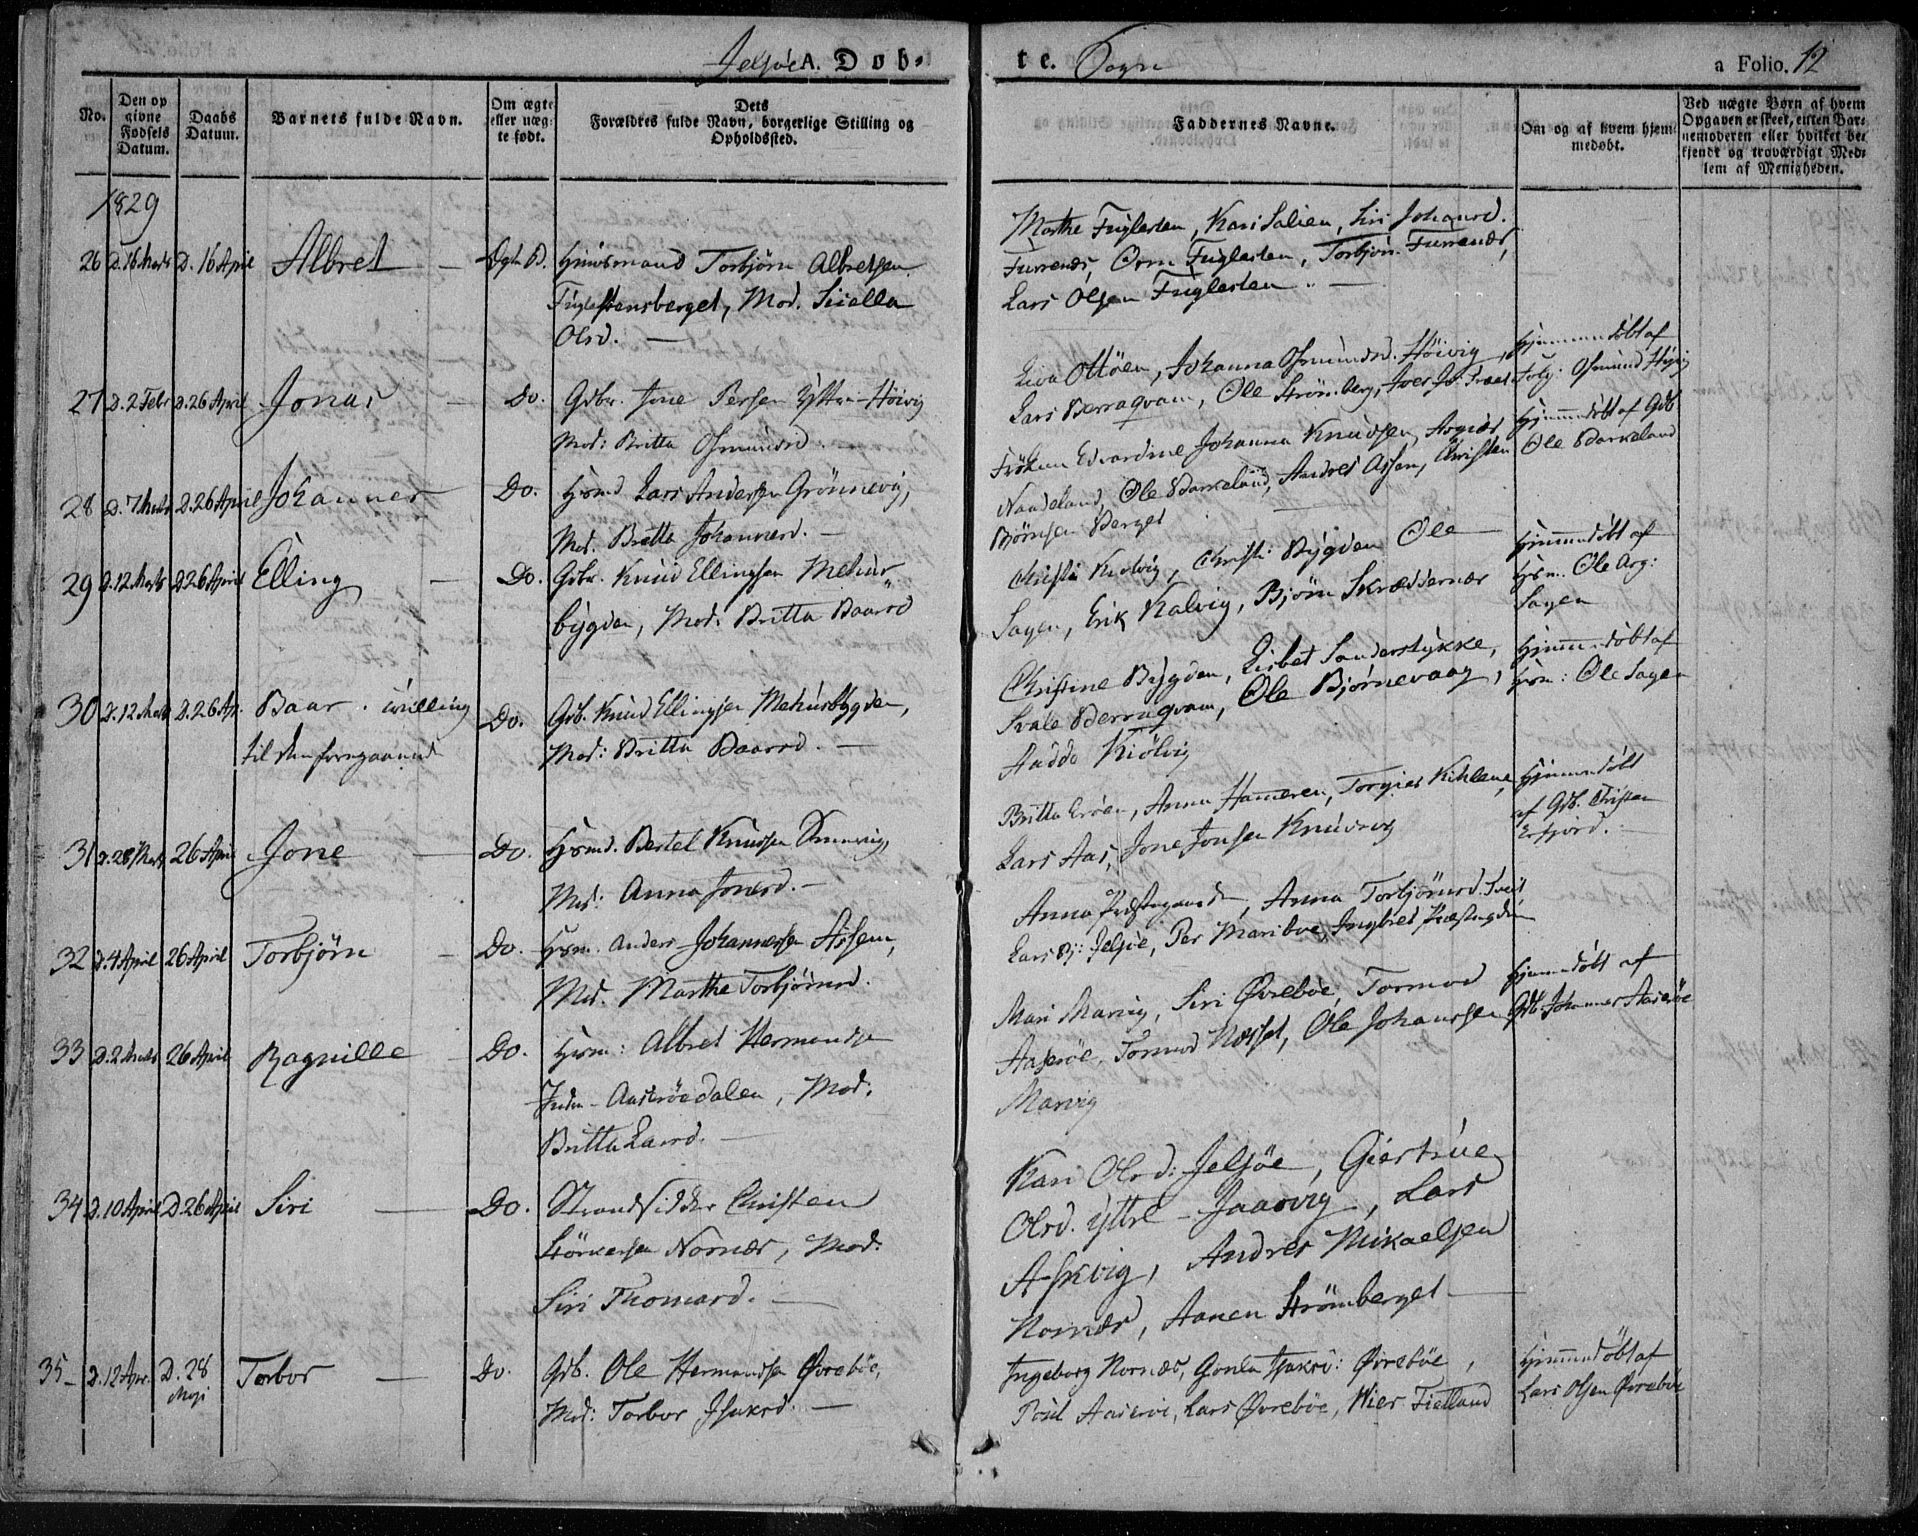 Jelsøe A. Døb-
te. Sogn
a Folio. 12
No.
Den op
givne
Fødsels
Datum.
Daabs
Datum.
Barnets fulde Navn.
Om ægte
eller uæg-
te født.
Dets
Forældres fulde Navn, borgerlige Stilling og
Opholdssted.
Faddernes Navne.
Om og af hvem hjem-
medøbt.
Ved uægte Børn af hvem
Opgaven er skeet, enten Bar-
nemoderen eller hvilket be-
kjendt og troværdigt Med-
lem af Menigheden.
1829
26 D. 16 Marts D. 16 April Albret — Huusmand Torbjørn Albretsen
Fuglestensberget, Mod. Sisella
Olsd. —
Marthe Fuglesten, Kari Salien, Siri Johansd.
Furrenæs, Orm Fuglesten, Torbjörn Furrenæs,
Lars Olsen Fuglesten —
27 D. 2 Febr D. 26 April Jonas — Do. Gdbr. Jone Persen Yttre-Höivig
Mod: Britta Osmundsd.
Liva Ottöen, Johanna Osmundsd. Höivig,
Lars Berraqvam, Ole Strömberg, Iver
Hjemmedöbt af
Osmund Höivig
28 D. 7 Marts D. 26 April Johannes Do. Hsmd Lars Andersen Grönnevig,
Mod. Britta Johannesd. —
Fröken Edvardine Johanna Knudsen, Asgier
Naadeland, Ole Barkeland, Andres Assen, Christen
Björnsen Berget
Hjemmedöbt af Gdb.
Ole Barkeland
29 D. 12 Marts D. 26 April Elling — Do. Gdbr. Knud Ellingsen Mehus-
bygden, Mod: Britta Baarsd
Christi Kiolvig, Christi Bygden Ole
Sagen, Erik Kalvig, Bjørn Skræddernæs
Hjemmedöbt af
Hsm. Ole Arg:
Sagen
30 D. 12 Marts D. 26 Ap. Baar. tvilling
til den foregaaende
Do. Gdb. Knud Ellingsen Mehusbygden,
Mod: Britta Baarsd. —
Christine Bygden, Lisbet Sanderstykke,
Svale Berraqvam, Ole Bjørnevaag,
Aadde Kiölvig
Hjemmedöbt af
Hsm: Ole Sagen
31 D. 28 Marts 26 April Jone — Do. Hsmd. Bertel Knudsen
Mod: Anna Jonesd. —
Britta Eröen, Anna Hameren, Torgier Kihlene,
Lars Aas, Jone Jonsen Knudsvig
Hjemmedöbt
af Gdb. Christen
Erfjord. —
32 D. 4 April 26 April Torbjörn — Do. Hsm. Anders Johannessen Assem,
Mod. Marthe Torbjörnsd.
Anna Præstegaarden, Anna Torbjörnsd. Tveit
Lars Bj: Jelsöe, Per Mariboe, Ingbret
33 D. 2 Marts 26 April Ragnille — Do. Hsm: Albret Hermandsen
Indre-Aaseröedalen, Mod:
Britta Larsd. —
Mari Marvig, Siri Øvreböe, Tormod
Aaseröe, Tormod Næsset, Ole Johannssen
Marvig
Hjemmedöbt af
Gdb. Johannes Aaseröe
34 D. 10 April D. 26 April Siri — Do. Strandsidder Christen
Störkersen Nornæs, Mod:
Siri Thomasd. —
Kari Olsd: Jelsöe, Giertrue
Olsd. Yttre-Jaasvig, Lars
Askvig, Andres Mikaelsen
Nornæs, Aanen Strömberget —
35 — D. 12 Apr. D. 28
Maji Torbor — Do. Gdb. Ole Hermandsen Øvreböe,
Mod: Torbor Isaksd. —
Ingeborg Nornæs, Gonla Isaksd: Øvreböe,
Poul Aaseröe, Lars Øvreböe, Wier Fietland
Hjemmedöbt af
Lars Olsen Øvreböe